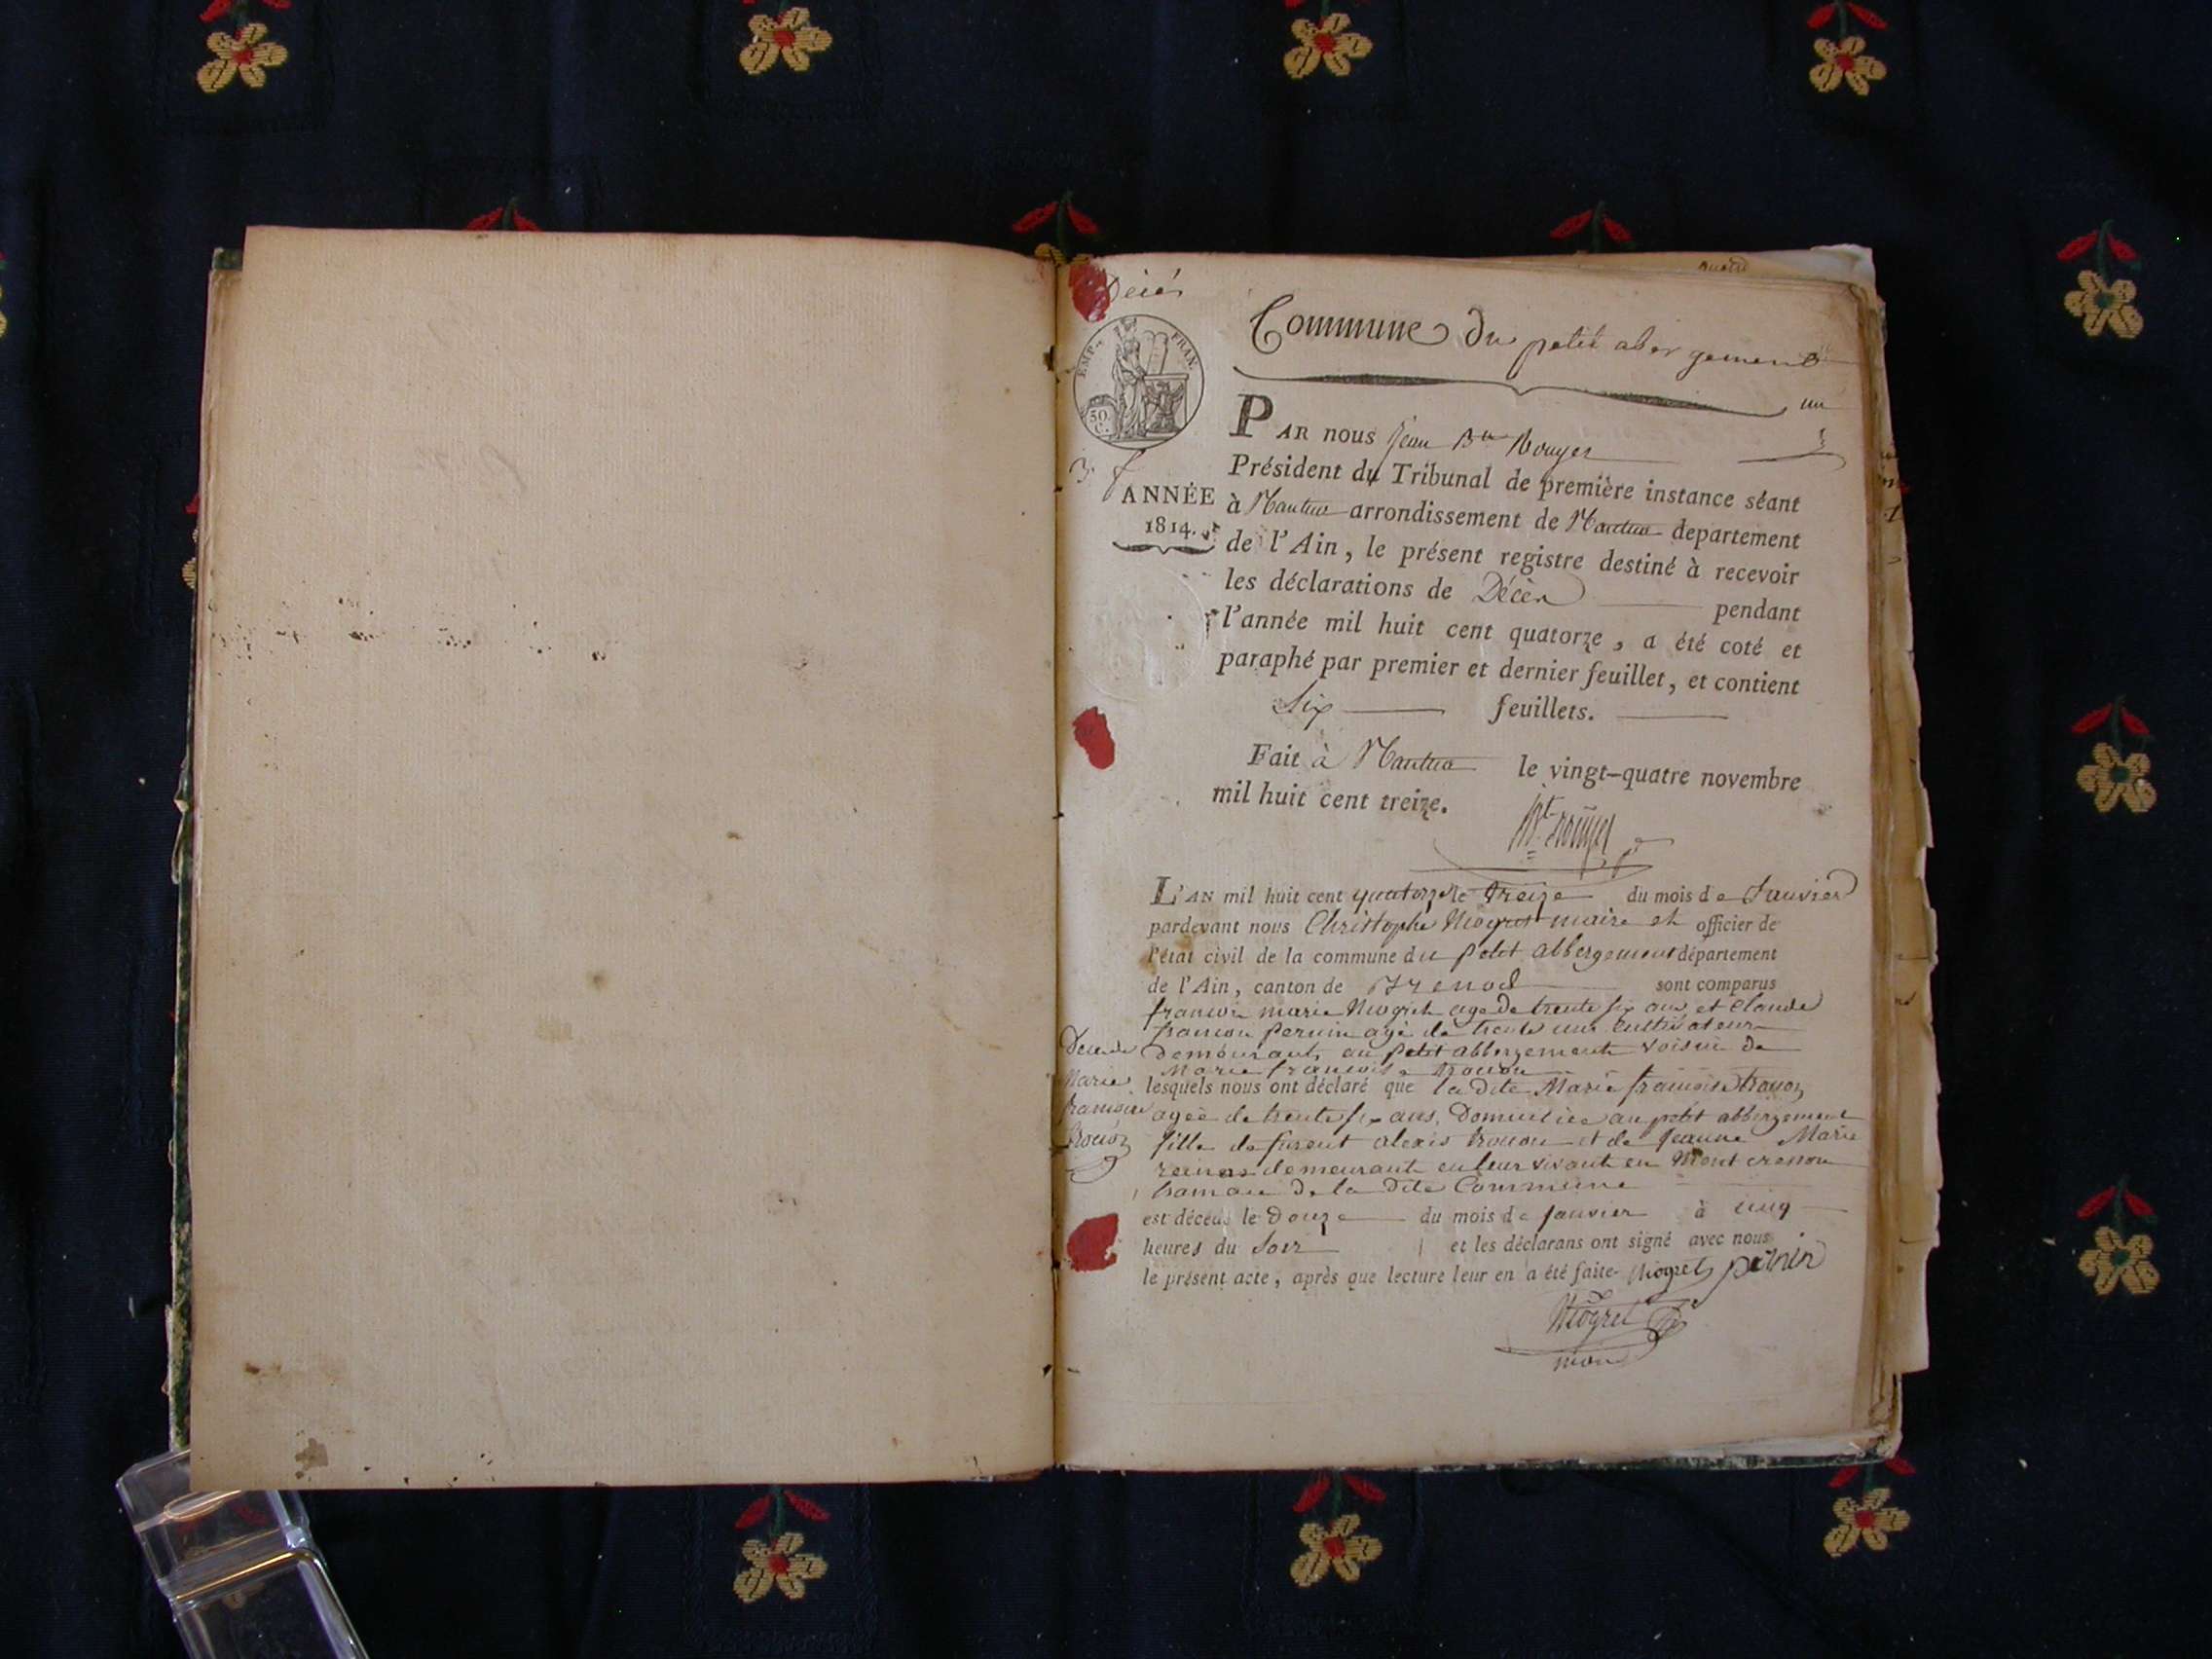 Décès
Commune du petit abergement
EMP. FRAN.
50
C.
un
PAR nous Jean Bte Rouyer
Président du Tribunal de première instance séant
ANNÉE
1814.
à Nantua arrondissement de Nantua departement
de l'Ain, le présent registre destiné à recevoir
les déclarations de Décès pendant
l'année mil huit cent quatorze, a été coté et
paraphé par premier et dernier feuillet, et contient
Six feuillets.
Fait à Nantua le vingt-quatre novembre
mil huit cent treize.
L'AN mil huit cent quatorze le treize du mois de Janvier
pardevant nous Christophe Mogret maire et officier de
l'état civil de la commune du petit abbergement département
de l'Ain, canton de Brenod sont comparus
francois marie Mogret age de trente six ans et Claude
francois perrin agé de trente un cultivateur
demeurant au petit abbergement voisin de
Marie francoise
lesquels nous ont déclaré que la dite Marie francoise
agée de trente six ans, Domiciliée au petit abbergement
fille de furent alexis et de jeanne Marie
demeurant en leur vivant en
hameau de la dite Commune
est décédé le Douze du mois de janvier à cinq
heures du Soir et les déclarans ont signé avec nous
le présent acte, après que lecture leur en a été faite Mogret perrin
Mogret
Marie
francoise